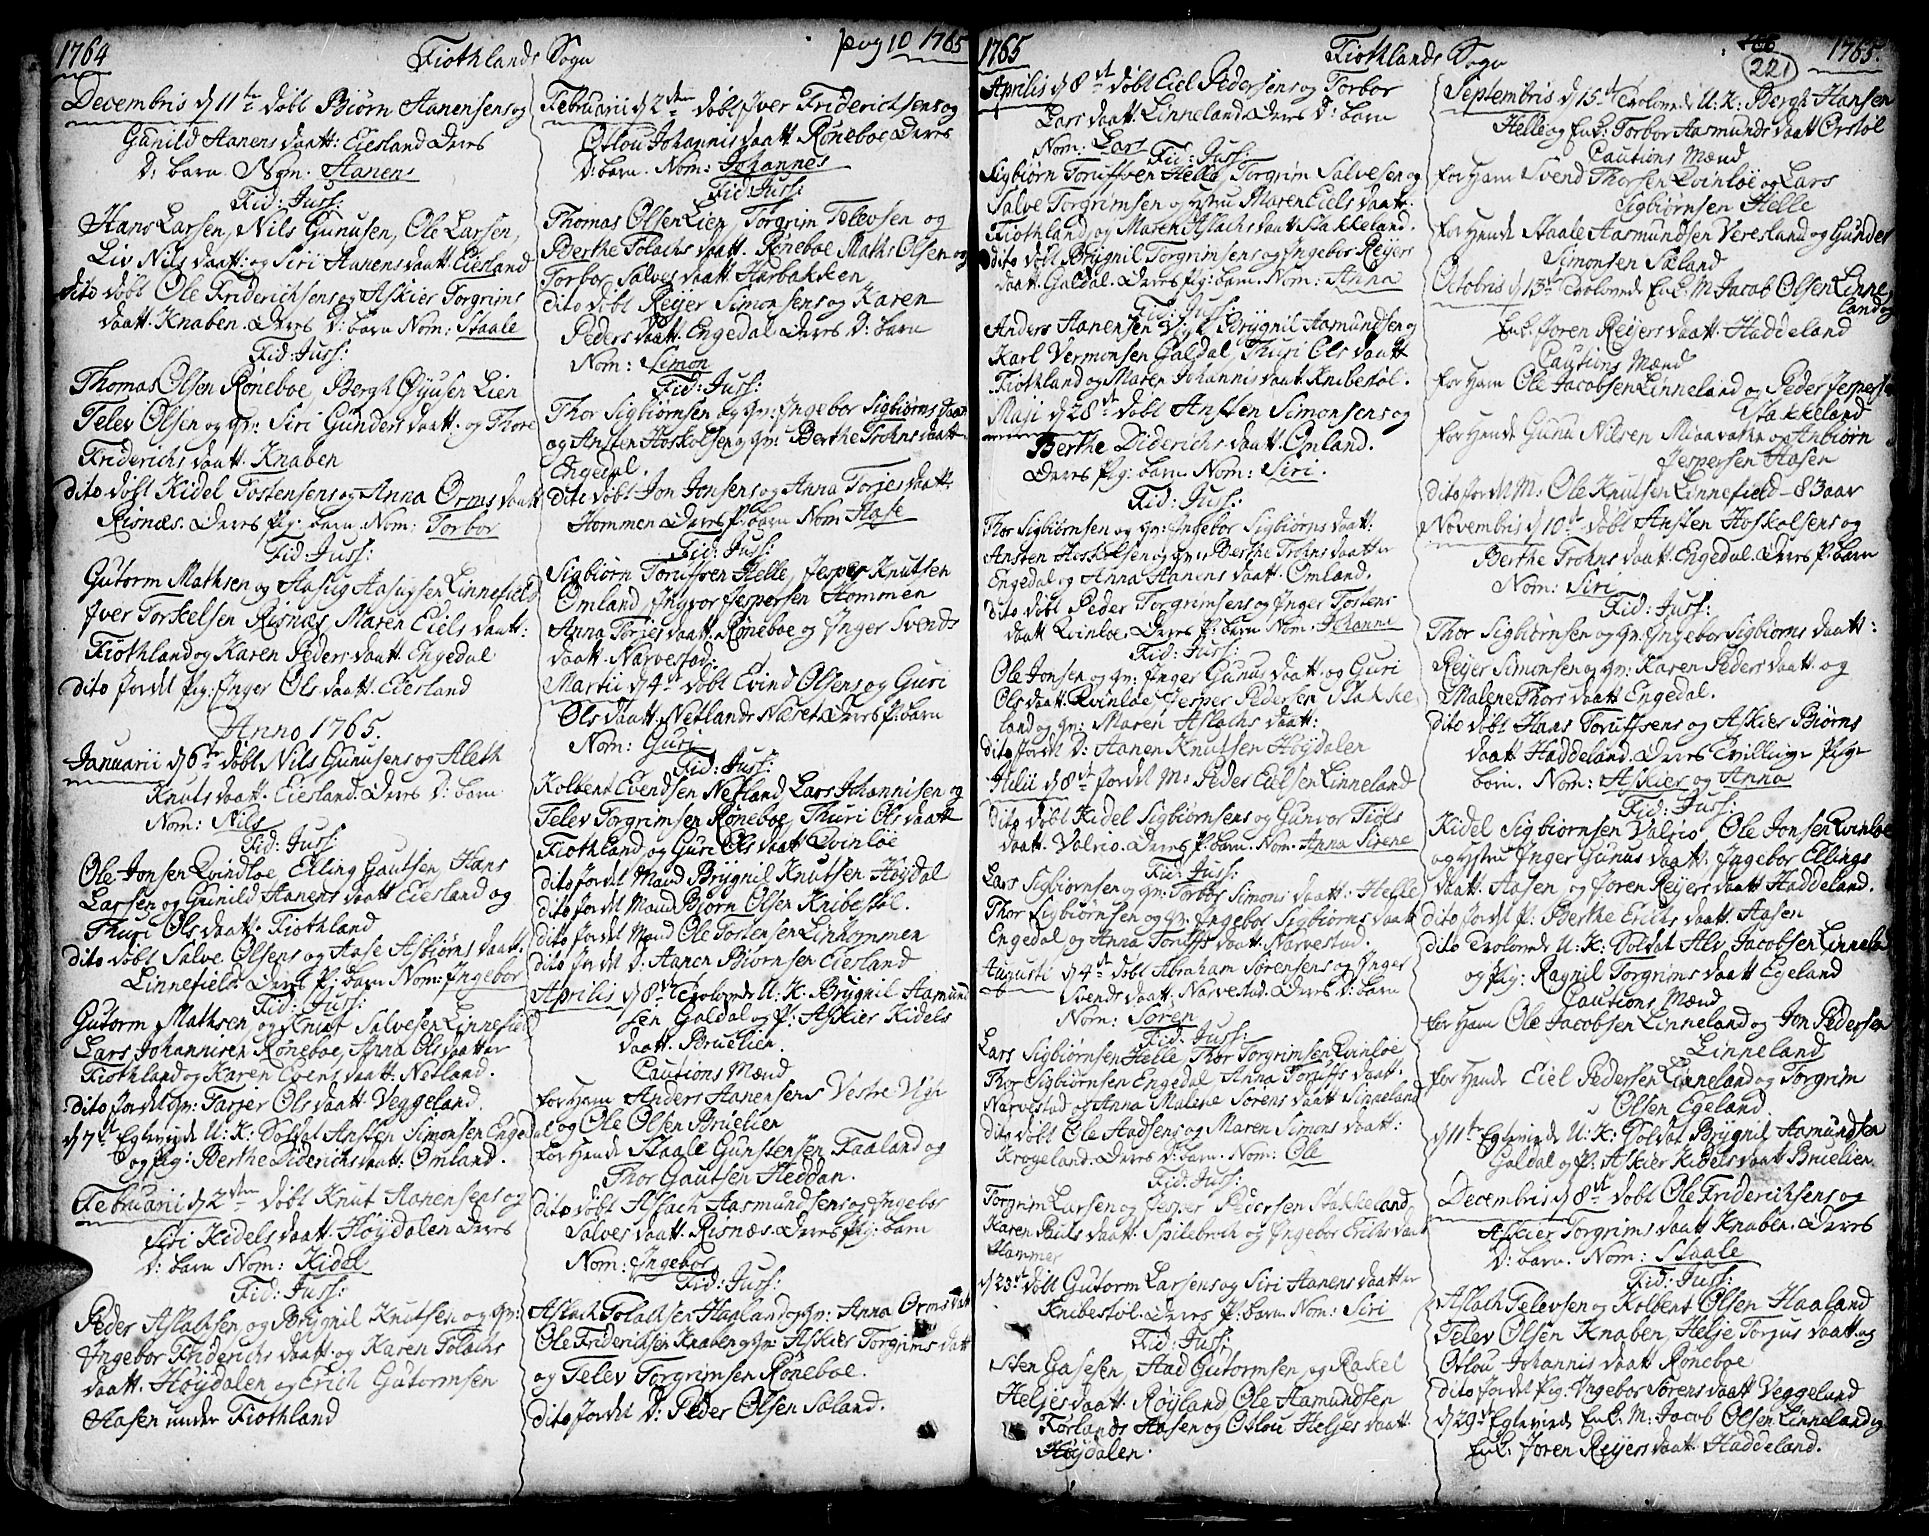 1764 Fiothlands Sogn pag 10 1765
Decembris d 11te døbt Biørn Aanensens og
Gunild Aanens daatt: Eiesland Deres
D: barn Nom: Aanens
Fid: Juss:
Hans Larsen, Nils Gunusen, Ole Larsen,
Liv Nils daatt: og Siri Aanens daatt Eiesland
dito døbt Ole Friderichsens og Askier Torgrims
daatt. Knaben. Deres D: barn Nom: Staale
Fid: Juss:
Thomas Olsen Røneboe, Bergh Øyusen Lien
Telev Olsen og qv: Siri Gunders daatt. og Thore
Friderichs daatt. Knaben
dito døbt Kidel Tostensens og Anna Orms daatt
Risnæs. Deres Pig: barn Nom: Torbor
Fid: Juss:
Gutorm Mathsen og Aasug Aasugsen Linnefield
Jver Torkelsen Risnæs, Maren Eiels daatt:
Fiothland og Karen Peders daatt. Engedal
dito Jordet Pig: Inger Ols daatt. Eiesland
Anno 1765.
Januarii d 6te døbt Nils Gunusens og Aleth
Knuts daatt. Eiesland. Deres D: barn
Nom: Nils
Fid: Juss:
Ole Jonsen Qvindloe, Elling Gautsen, Hans
Larsen og Gunild Aanens daatt Eiesland og
Thuri Ols daatt. Fiothland
dito døbt Salve Olsens og Aase Asbiørns daatt.
Linnefield. Deres P: barn Nom: Ingebor
Fid: Juss:
Gutorm Mathsen og Knut Salvesen Linnefield
Lars Johannisen Røneboe, Anna Ols daatter
Fiothland og Karen Evens daatt. Netland.
dito Jordet qv: Tarjer Ols daatt Veggeland.
d 7de Egteviede U: K: Soldat Ansten Simonsen Engedal
og Pig: Berthe Diderichs daatt: Omland.
Februarii d 2den døbt Knut Aanensens og
Siri Kidels daatt. Høydalen Deres
D: barn Nom: Kidel
Fid: Juss:
Peder Aslaksen og Brygnil Knutsen og qv:
Ingebor Friderichs daatt. og Karen Tolachs
daatt. Høydalen og Erich Gutormsen
Aasen under Fiothland
Februarii d 2den døbt Jver Friderichsens og
Oslou Johannis daatt Røneboe Deres
D: barn. Nom: Johannes
Fid Juss:
Thomas Olsen Lien, Torgrim Televsen og
Berthe Tolachs daatt. Røneboe Maths Olsen og
Torbor Salves daatt Aarbakken
dito døbt Reyer Simonsens og Karen
Peders daatt. Engedal Deres D: barn
Nom: Simon
Fid: Juss:
Thor Sigbiørnsen og qv: Ingebor Sigbiørns daatt
og Ansten Hoskolsen og qv: Berthe Trohns daatt
Engedal.
dito døbt Jon Jonsens og Anna Torjes daatt
Hommen Deres P: barn Nom Aase
Fid: Juss:
Sigbiørn Torufsen Helle, Jesper Knutsen
Omland Ingvor Jespersen Hommen
Anna Torjes daatt. Røneboe og Inger Svends
daatt. Narvestad.
Martii d 4de døbt Evind Olsens og Guri
Ols daatt. Netlands Næset. Deres P: barn
Nom: Guri
Fid: Juss:
Kolbent Evendsen Netland Lars Johannisen og
Telev Torgrimsen Røneboe, Thuri Ols daatt
Fiothland og Guri Ols daatt Qvinløe
dito Jordet Mand Brygnil Knutsen Høydal
dito Jordet Mand Biørn Olsen Knibestøl.
dito Jordet Mand Ole Tostensen Linhommen
dito Jordet D: Aanen Biørnsen Eiesland
Aprilis d 8de Trolovede U: K: Brygnil Aamund
sen Galdal og P: Askier Kidels
daatt: Bruelien
Cautions Mænd
for Ham Anders Aanensens Vestre Ugl
og Ole Olsen Bruelien
for Hende Staale Gunstensen Faaland og
Thor Gautsen Heddan.
dito døbt Aslach Aasmundsens og Ingebor
Salves daatt. Risnæs. Deres Pig: barn
Nom: Ingebor
Fid: Juss:
Aslach Tolachsen Haaland og qv: Anna Orms daatt
Ole Friderichsen Knaben og qv: Askier Torgrims datt
og Telev Torgrimsen Røneboe.
dito Jordet D: Peder Olsen Saland.
1765 Fiothlands Sogn 221 1765.
Aprilis d 8de døbt Eiel Pedersens og Torbor
Lars daatt Linneland. Deres D: barn
Nom: Lars
Fid: Juss:
Sigbiørn Torufsen Helle Torgrim Salvesen og
Salve Torgrimsen og ystru Maren Eiels daatt.
Fiothland, og Maren Aslachs daatt Stakkeland.
dito døbt Brygnil Torgrimsens og Ingebor Reyers
daatt. Galdal. Deres Pig: barn. Nom: Anna
Fid: Juss:
Anders Aanensen Ugl Brygnil Aamundsen og
Karl Vermonsen Galdal Thuri Ols daatt
Fiothland og Maren Johannis daatt. Knibestøl.
Maji d 28de døbt Ansten Simonsens og
Berthe Diderichs daatt. Omland.
Deres Pig: barn Nom: Siri.
Fid: Juss:
Thor Sigbiørnsen og qv: Ingebor Sigbiørns daatt:
Ansten Hoskolsen og qv: Berthe Trohns daatter
Engedal og Anna Aanens daatt. Omland.
dito døbt Peder Torgrimsens og Inger Tostens
daatt Qvinløe. Deres P: barn Nom. Johanne
Fid: Juss:
Ole Jonsen og qv: Inger Gunus daatt. og Guri
Ols daatt. Qvinløe, Jesper Pedersen Stakke
land og qv: Maren Aslachs daatt:
dito Jordet D: Aanen Knutsen Høydalen
Julii d 8de Jordet M: Peder Eielsen Linneland
dito døbt Kidel Sigbiørnsens og Gunvor Tiøls
daatt. Valrio. Deres P: barn. Nom: Anna Sirene
Fid: Juss:
Lars Sigbiørnsen og qv: Torbor Simons daatt: Helle
Thor Sigbiørnsen og qv: Ingebor Sigbiørns daatt
Engedal og Anna Torufs daatt. Narvestad.
Augusti d 4de døbt Abraham Sørensens og Inger
Svends daatt. Narvestad. Deres D: barn
Nom: Søren
Fid: Juss:
Lars Sigbiørnsen Helle, Thor Torgrimsen Qvinløe
Thor Sigbiørnsen Engedal, Anna Torufs daatt.
Narvestad og Anna Malene Sørens daatt Linneland
dito døbt Ole Aadsens og Maren Simons daatt:
Krogeland. Deres D: barn. Nom: Ole
Fid: Juss:
Torgrim Larsen og Jesper Pedersen Stakkeland
Karen Pauls daatt. Spilebroth og Ingebor Erichs daatt
Hammer
d 23de døbt Gutorm Larsens og Siri Aanens daatter
Knibestøl. Deres P: barn Nom: Siri
Fid: Juss:
Sten Gasesen, Aad Gutormsen, og Rakel
Heljes daatt. Røyland Ole Aamundsen
Førlands Aasen og Oslou Heljes daatt
Høydalen.
Septembris d 15de Trolovede U: K: Bergh Hansen
Helle og Enk: Torbor Aasmunds daatt Ørstøl
Cautions Mænd
for Ham Svend Thorsen Qvinløe og Lars
Sigbiørnsen Helle
for Hende Staale Aasmundsen Veresland og Gunder
Simonsen Sæland
Octobris d 13de Trolovede Enk: M: Jacob Olsen Linne
land og
Enk: Joren Reyers daatt. Haddeland
Cautions Mænd
for Ham Ole Jacobsen Linneland og Peder Jespersen
Stakkeland
for Hende Gunu Nilsen Miaavatn og Anbiørn
Jespersen Aasen
dito Jordet M: Ole Knutsen Linnefield - 83 aar
Novembris d 10de døbt Ansten Hoskolsens og
Berthe Trohns daatt. Engedal. Deres P: barn
Nom: Siri
Fid: Juss:
Thor Sigbiørnsen og qv: Ingebor Sigbiørns daatt:
Reyer Simonsen og qv: Karen Peders daatt. og
Malene Thors daatt Engedal.
dito døbt Hans Torufsens og Askier Biørns
daatt Haddeland. Deres Tvillinge Pige
børn. Nom: Askier og Anna
Fid: Juss:
Kidel Sigbiørnsen Valrio Ole Jonsen Qvinløe
og ystru Inger Gunus daatt. Ingebor Ellings
daatt. Aasen, og Joren Reyers daatt Haddeland.
dito Jordet P: Berthe Erichs daatt. Aasen
dito Trolovede U: K: Soldat Alv Jacobsen Linneland
og Pig: Ragnil Torgrims daatt Egeland
Cautions Mænd
for Ham Ole Jacobsen Linneland og Jon Pedersen
Linneland
for Hende Eiel Pedersen Linneland og Torgrim
Olsen Egeland.
d 11te Egteviede U: K: Soldat Brygnil Aamundsen
Galdal og P: Askier Kidels daatt Bruelien
Decembris d 8de døbt Ole Friderichsens og
Askier Torgrims daatt Knaben. Deres
D: barn. Nom: Staale
Fid: Juss:
Aslach Televsen og Kolbent Olsen Haaland
Telev Olsen Knaben, Helje Torjus daatt. og
Oslou Johannis daatt Røneboe
dito Jordet Pig: Ingebor Sørens daatt Veggeland
d 29de Egteviede Enk: M: Jacob Olsen Linneland og
Enk: Joren Reyers daatt. Haddeland.